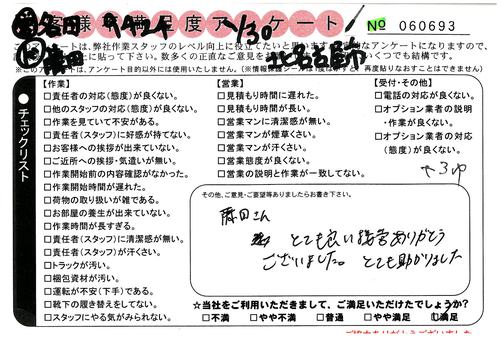 お客様満足度アンケート
No 060693
1/30
北名古屋市
このアンケートは、弊社作業スタッフのレベル向上に役立てたいと思います
アンケートになりますので、
に貼って下さい。数多くの正直なご意見を
いくつでも結構です。
※このアンケートは、アンケート目的以外には使用いたしません。
チェックリスト
【作業】
□責任者の対応(態度)が良くない。
□他のスタッフの対応(態度)が良くない。
□作業を見ていて不安がある。
□責任者(スタッフ)に好感が持てない。
□お客様への挨拶が出来ていない。
□ご近所への挨拶・気遣いが無い。
□作業開始前の内容確認がなかった。
□作業開始時間が遅れた。
□荷物の取り扱いが雑である。
□お部屋の養生が出来ていない。
□作業時間が長すぎる。
□責任者(スタッフ)に清潔感が無い。
□責任者(スタッフ)が汗くさい。
□トラックが汚い。
□梱包資材が汚い。
□運転が不安(下手)である。
□靴下の履き替えをしてない。
□スタッフにやる気がみられない。
【営業】
□見積もり時間に遅れた。
□見積もり時間が長い。
□営業マンに清潔感が無い。
□営業マンが煙草くさい。
□営業マンが汗くさい。
□営業態度が良くない。
□営業の説明と作業が一致してない。
【受付・その他】
□電話の対応が良くない。
□オプション業者の説明
・作業が良くない。
□オプション業者の対応
(態度)が良くない。
その他、ご意見・ご要望等ありましたらお書き下さい。
さん
とても良い接客ありがとう
ございました。とても助かりました
☆当社をご利用いただきまして、ご満足いただけたでしょうか?
□不満 □やや不満 □普通 □やや満足 □満足
ご協力ありがとうございました